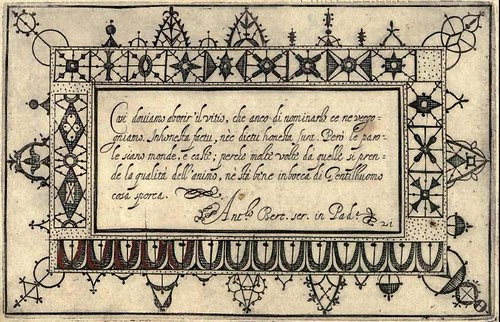 Così douiamo aborir il vitio, che anco di nominarlo ce ne vergo-
gniamo. Inhonesta factu, nèc dictu honesta sunt. Però le paro-
le siano monde, e caste; perche molte volte da quelle si pren-
de la qualità dell'animo, nè stà bene in bocca di Gentilhuomo
cosa sporca.
Ant.o Bert. scr. in Pad.a
21